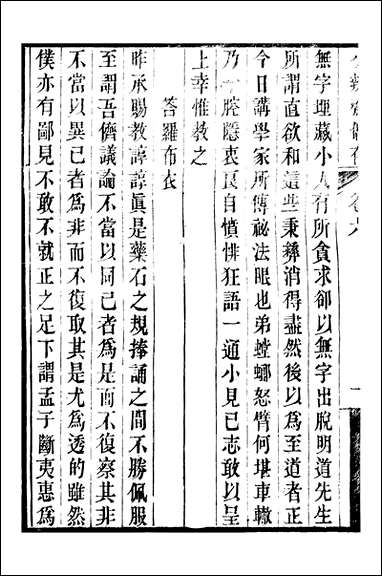 無字埋藏小人有所貪求卻以無字出脫明道先生
所謂直欲和這些秉彝消得盡然後以爲至道者正
今日講學家所傳祕法眼也弟螳螂怒臂何堪車轍
乃一腔隱衷良自憤悱狂語一通小見已志敢以呈
上幸惟教之
答羅布衣
昨承賜教諄諄眞是藥石之規捧誦之間不勝佩服
至謂吾儕議論不當以同己者爲是而不復察其非
不當以異己者爲非而不復取其是尤爲透的雖然
僕亦有鄙見不敢不就正之足下謂孟子斷夷惠爲